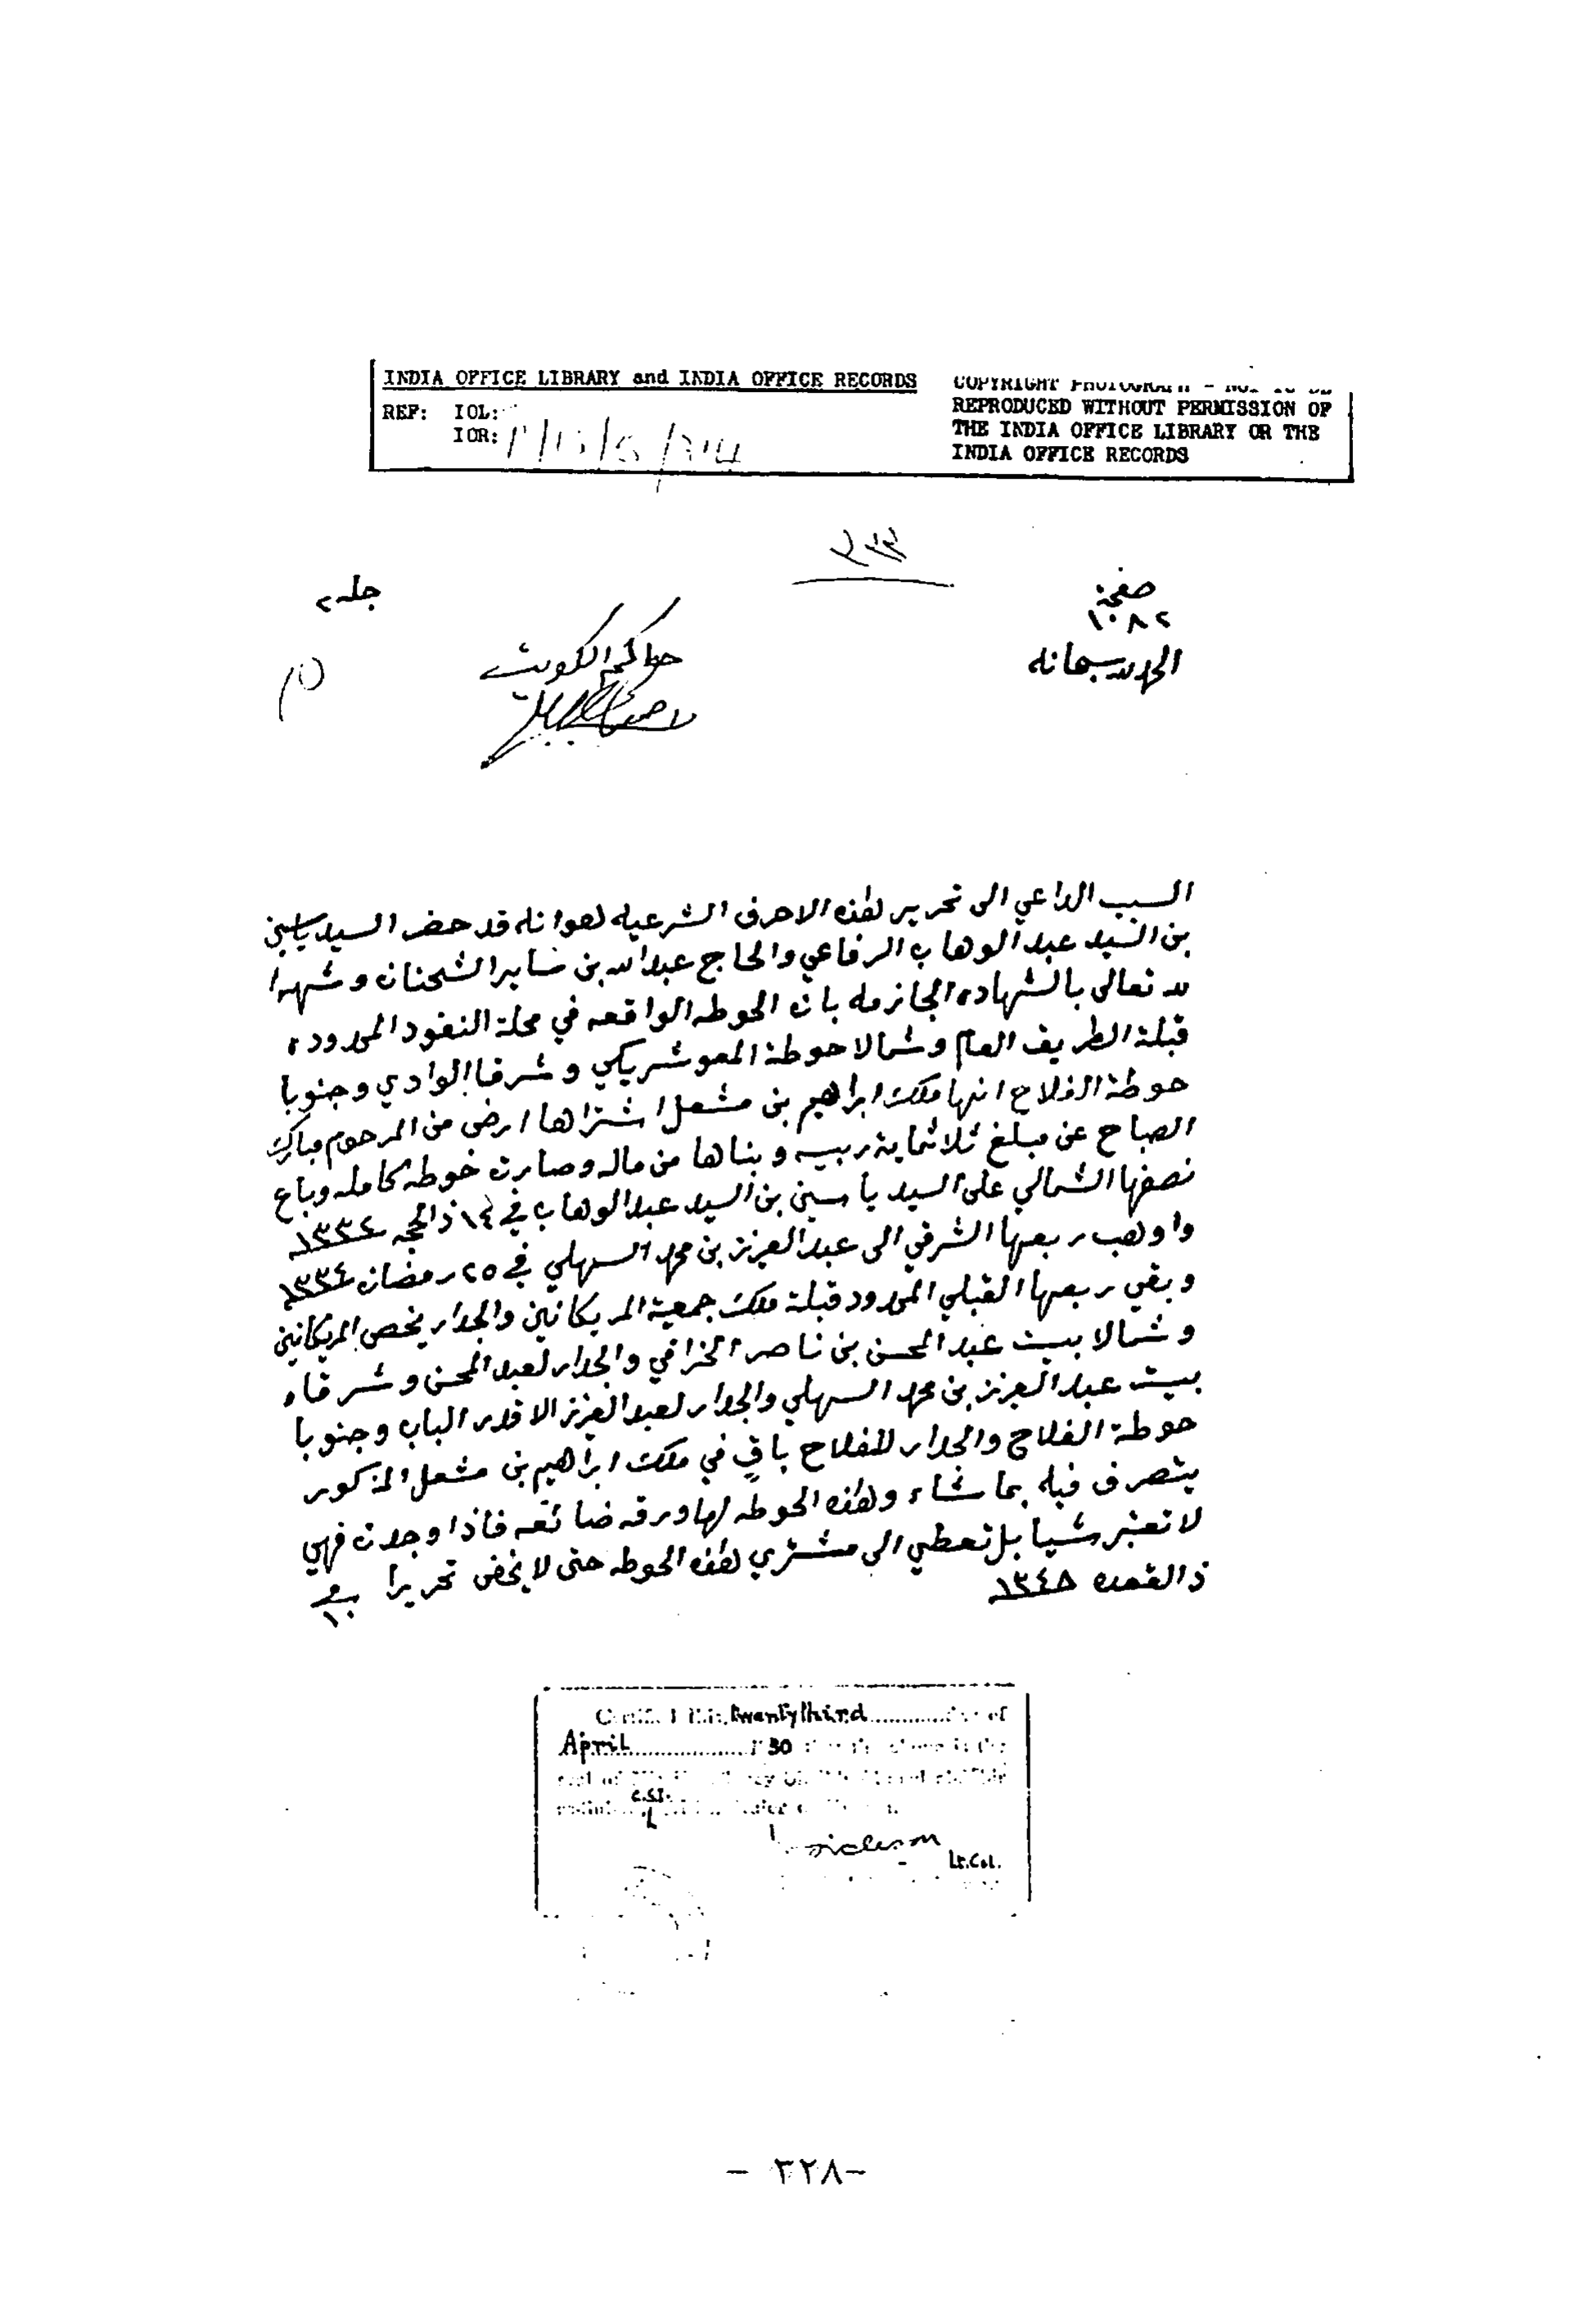 INDIA OFFICE LIBRARY and INDIA OFFICE RECORDS
REF: IOL:
IOR:
COPYRIGHT PHOTOGRAPH - NOT TO BE
REPRODUCED WITHOUT PERMISSION OF
THE INDIA OFFICE LIBRARY OR THE
INDIA OFFICE RECORDS
صفحة
١٠٨٢
جلد ٢
الحمد لله سبحانه
حاكم الكويت
السبب الداعي الى تحرير هذه الاحرف الشرعيه هو انه قد حضر السيد ياسين
بن السيد عبد الوهاب الرفاعي والحاج عبد الله بن صابر الشحنان وشهدا
لله تعالى بالشهاده الجازمه بان الحوطه الواقعه في محلة النفود المحدوده
قبلة الطريق العام وشمالا حوطة المعوشريكي وشرقا الوادي وجنوبا
حوطة الفلاح انها ملك ابراهيم بن مشعل اشتراها ارض من المرحوم مبارك
الصباح عن مبلغ ثلاثماية ربيه وبناها من ماله وصارت حوطه كامله وباع
نصفها الشمالي على السيد ياسين بن السيد عبد الوهاب في ١٤ ذالحجه ١٣٣٢
واوهب ربعها الشرقي الى عبد العزيز بن محمد السهلي في ٢٥ رمضان ١٣٣٤
وبقي ربعها القبلي المحدود قبلة ملك جمعية المريكانين والجدار يخص المريكانين
وشمالا بيت عبد المحسن بن ناصر الخرافي والجدار لعبد المحسن وشرقاء
بيت عبد العزيز بن محمد السهلي والجدار لعبد العزيز الا قدر الباب وجنوبا
حوطة الفلاح والجدار للفلاح باقٍ في ملك ابراهيم بن مشعل المذكور
يتصرف فيه بما شاء وهذه الحوطه لها ورقه ضائعه فاذا وجدت فهي
لا تعتبر شيا بل تعطي الى مشتري هذه الحوطه حتى لا يخفى تحريرا في ١٠
ذالقعده ١٣٤٨
twentythird of
April 30
C.S.I.
Lt.Col.
- ٣٢٨ -